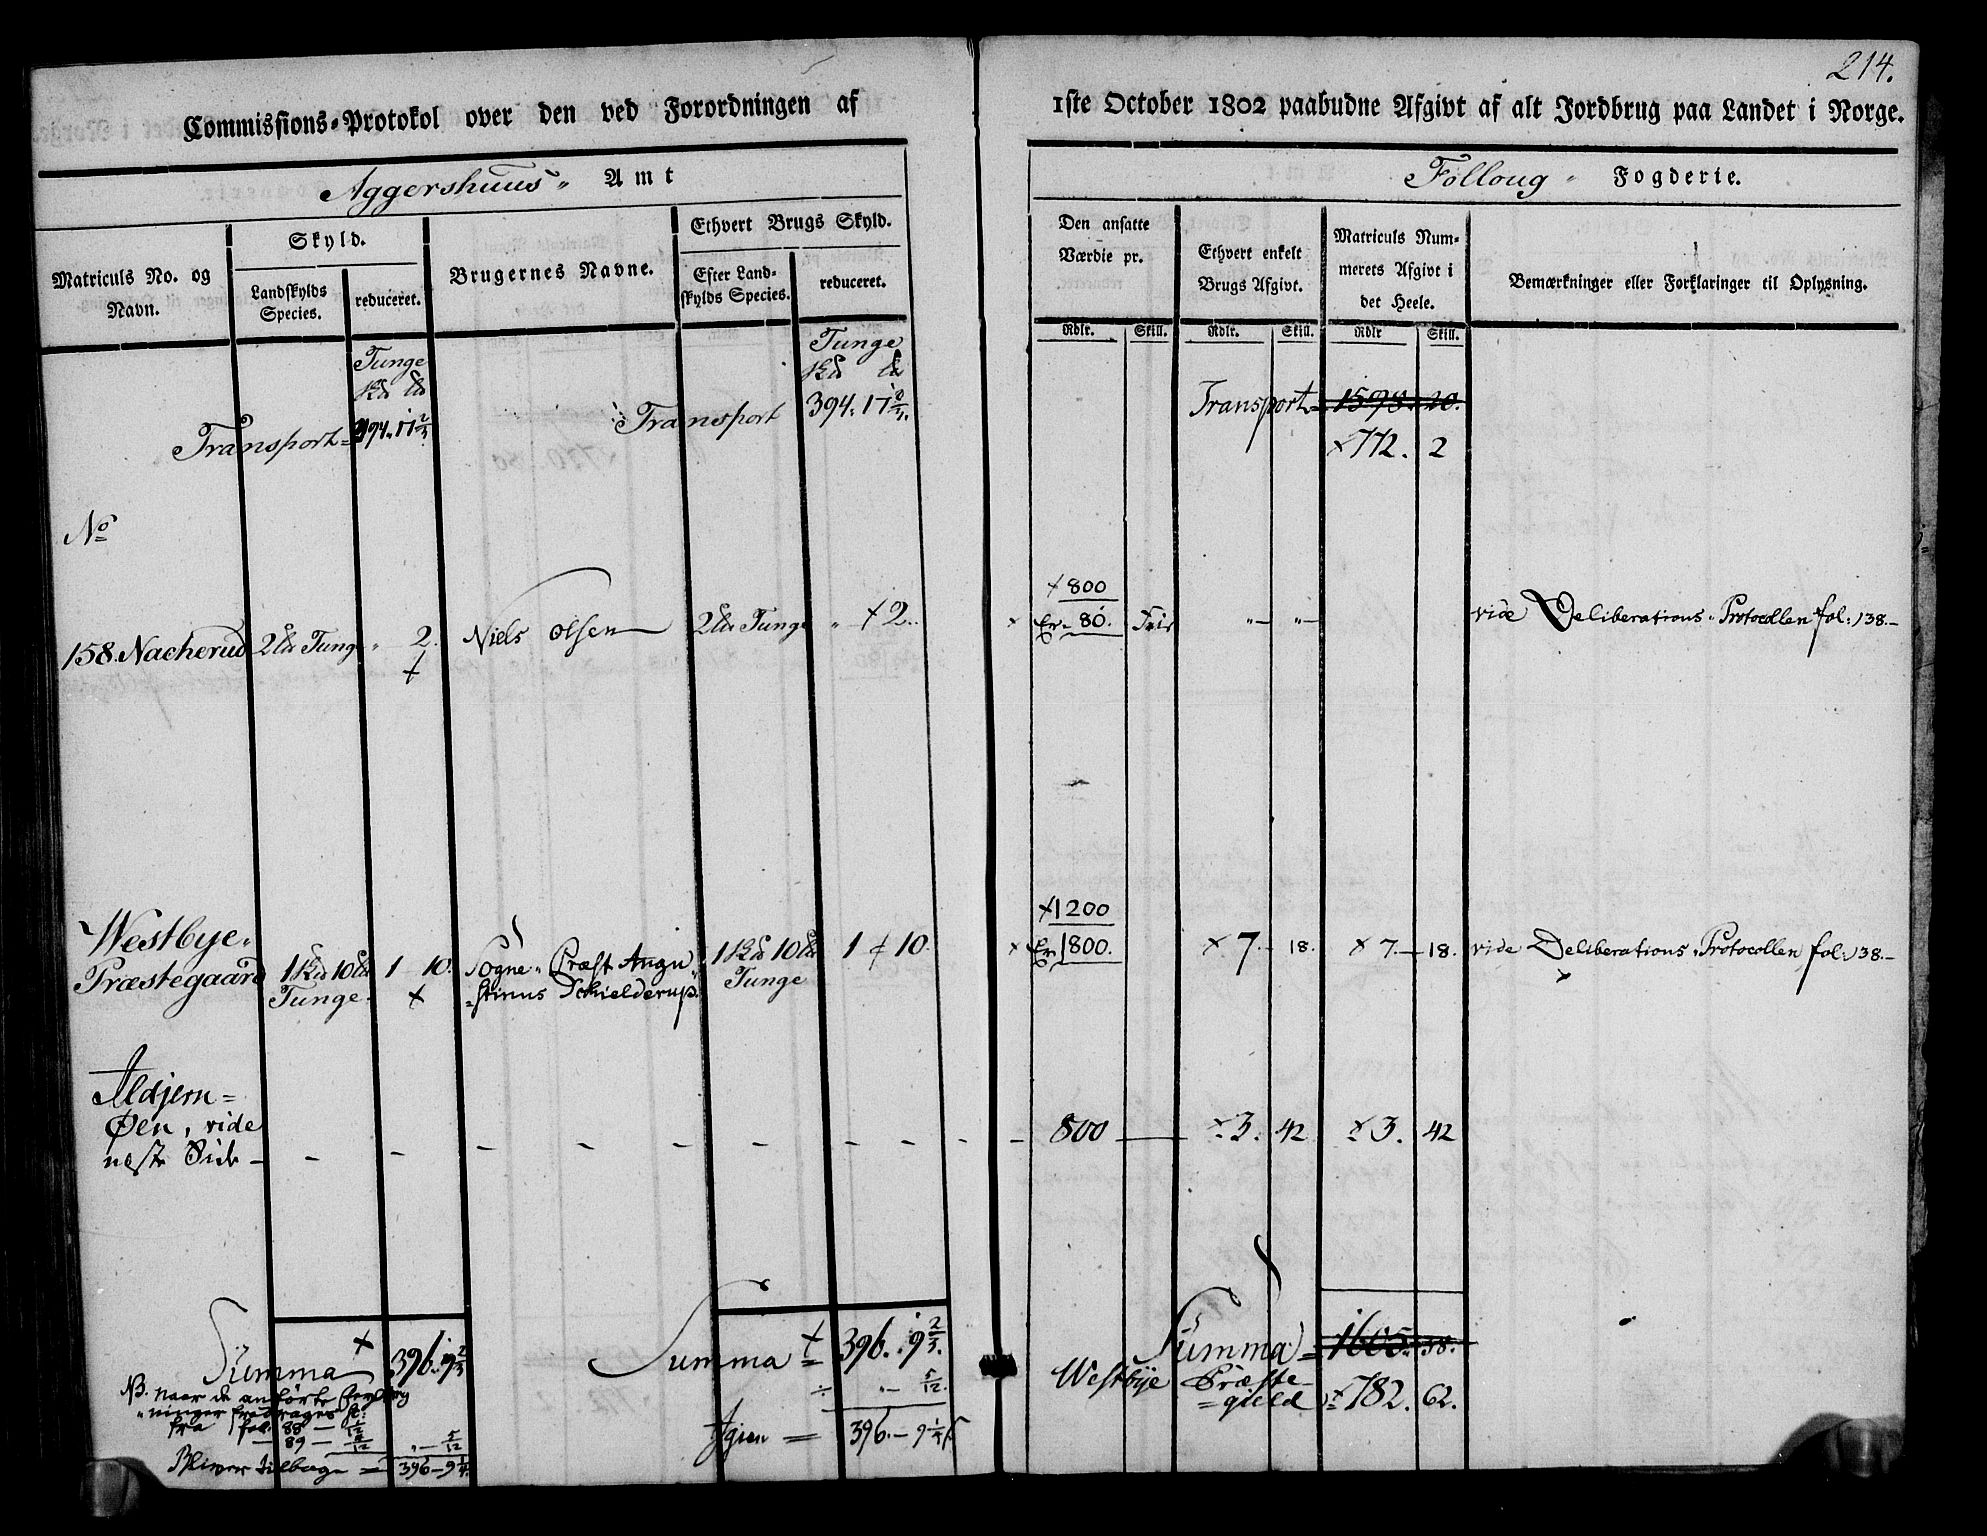 214.
Commissions-Protokol over den ved Forordningen af
1ste October 1802 paabudne Afgivt af alt Jordbrug paa Landet i Norge.
Aggershuus Amt
Folloug Fogderie.
Matriculs No. og Navn.
Skyld.
Landskylds Species.
reduceret.
Brugernes Navne.
Ethvert Brugs Skyld.
Efter Landskylds Species.
reduceret.
Den ansatte Værdie pr.
Ethvert enkelt Brugs Afgivt.
Matriculs Nummerets Afgivt i det Heele.
Bemærkninger eller Forklaringer til Oplysning.
Rdlr. Skill. Rdlr. Skill. Rdlr Skill.
Tunge
Tunge
Transport 394. 17 2/3
Transport 394. 17 2/3.
Transport 1598. 20.
x 772. 2
No
x 800
158. Nacherud 2 Tunge " 2. Niels Olsen 2 Tunge " x 2. x Er 80. Frie " " vide Deliberations Protocollen fol: 138.
x1200
Westbye Præstegaard 1 10 Tunge 1 10. Sogne Præst Augustinus Schielderup. 1 10 Tunge 1 x 10. x Er 1800. x 7. 18. x 7. 18. vide Deliberations Protocollen fol: 138.
Aldjern=
Øen, vide
næste Side
800 x 3. 42 x 3. 42
Summa x 396. 9 2/3
Summa x 396. 9 2/3.
Summa 1605. 38.
÷ " 5/12.
Igien = 396. 9 1/4
Westbye Præste=
gield x 782. 62.
NB. naar de anførte
fra fol: 88
89
" 5/12
Bliver tilbage = 396 - 9 1/4.